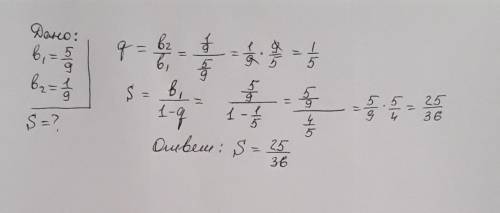 Дано:
b₁ = 5/9
b₂ = 1/9
S = ?
q = b₂/b₁ = (1/9)/(5/9) = 1/9 · 9/5 = 1/5
S = b₁/(1-q) = (5/9)/(1 - 1/5) = (5/9)/(4/5) = 5/9 · 5/4 = 25/36
Ответ: S = 25/36